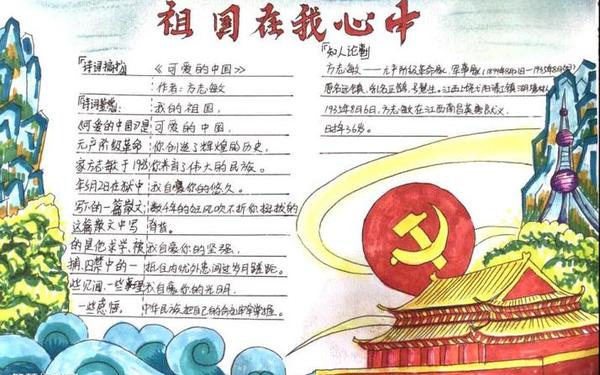 祖国在我心中
诗词摘抄
《可爱的中国》
作者：方志敏
诗词
我的祖国，
《可爱的中国》是
可爱的中国，
无产阶级革命
你创造了辉煌的历史
家方志敏于1935
你养育了伟大的民族。
年5月2日在狱中
我自豪你的悠久，
写下的一篇散文，
数千年的狂风吹不折你挺拔的
这篇散文中写
脊背。
的是他求学、被
我自豪你的坚强，
捕、囚禁中的一
抵住内忧外患闯过岁月蹉跎。
些见闻、一些事理
我自豪你的光明，
一些感悟。
中华民族把自己的命运牢牢掌握。
知人论世
方志敏——无产阶级革命家、军事家
原名远镇，乳名正鹄，号慧生。江西上饶
1935年8月6日，方志敏在江西南昌英勇就义，
时年36岁。